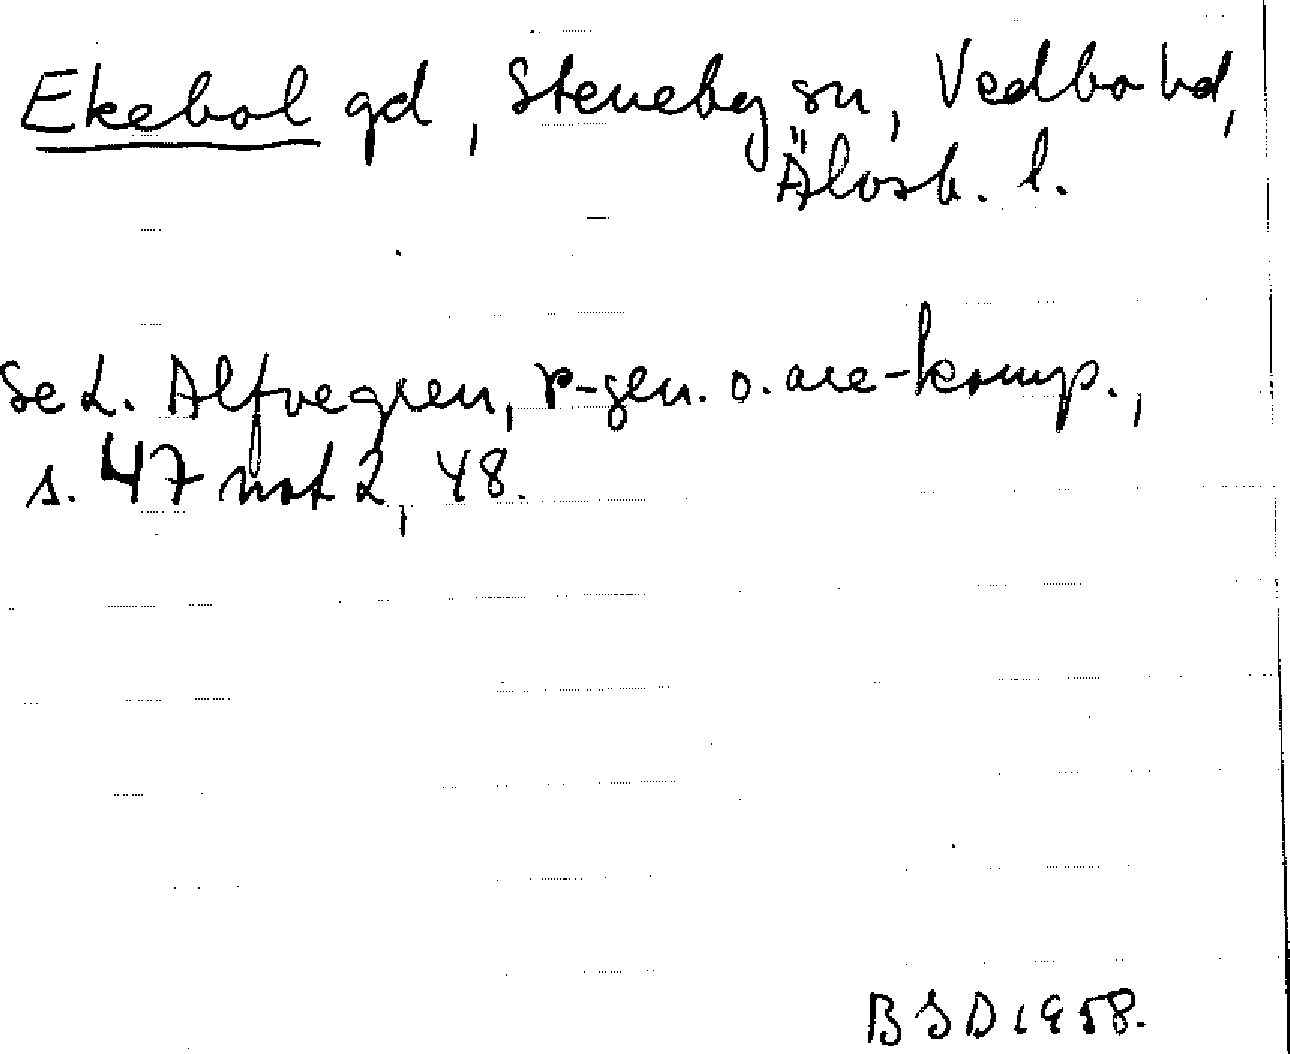 Ekebol gd, Steneby sn, Vedbo hd,
Älvsb. l.
Se L. Alfvegren, r-gen. o. are-komp.,
s. 47 not 2, 48.
BSD 1958.